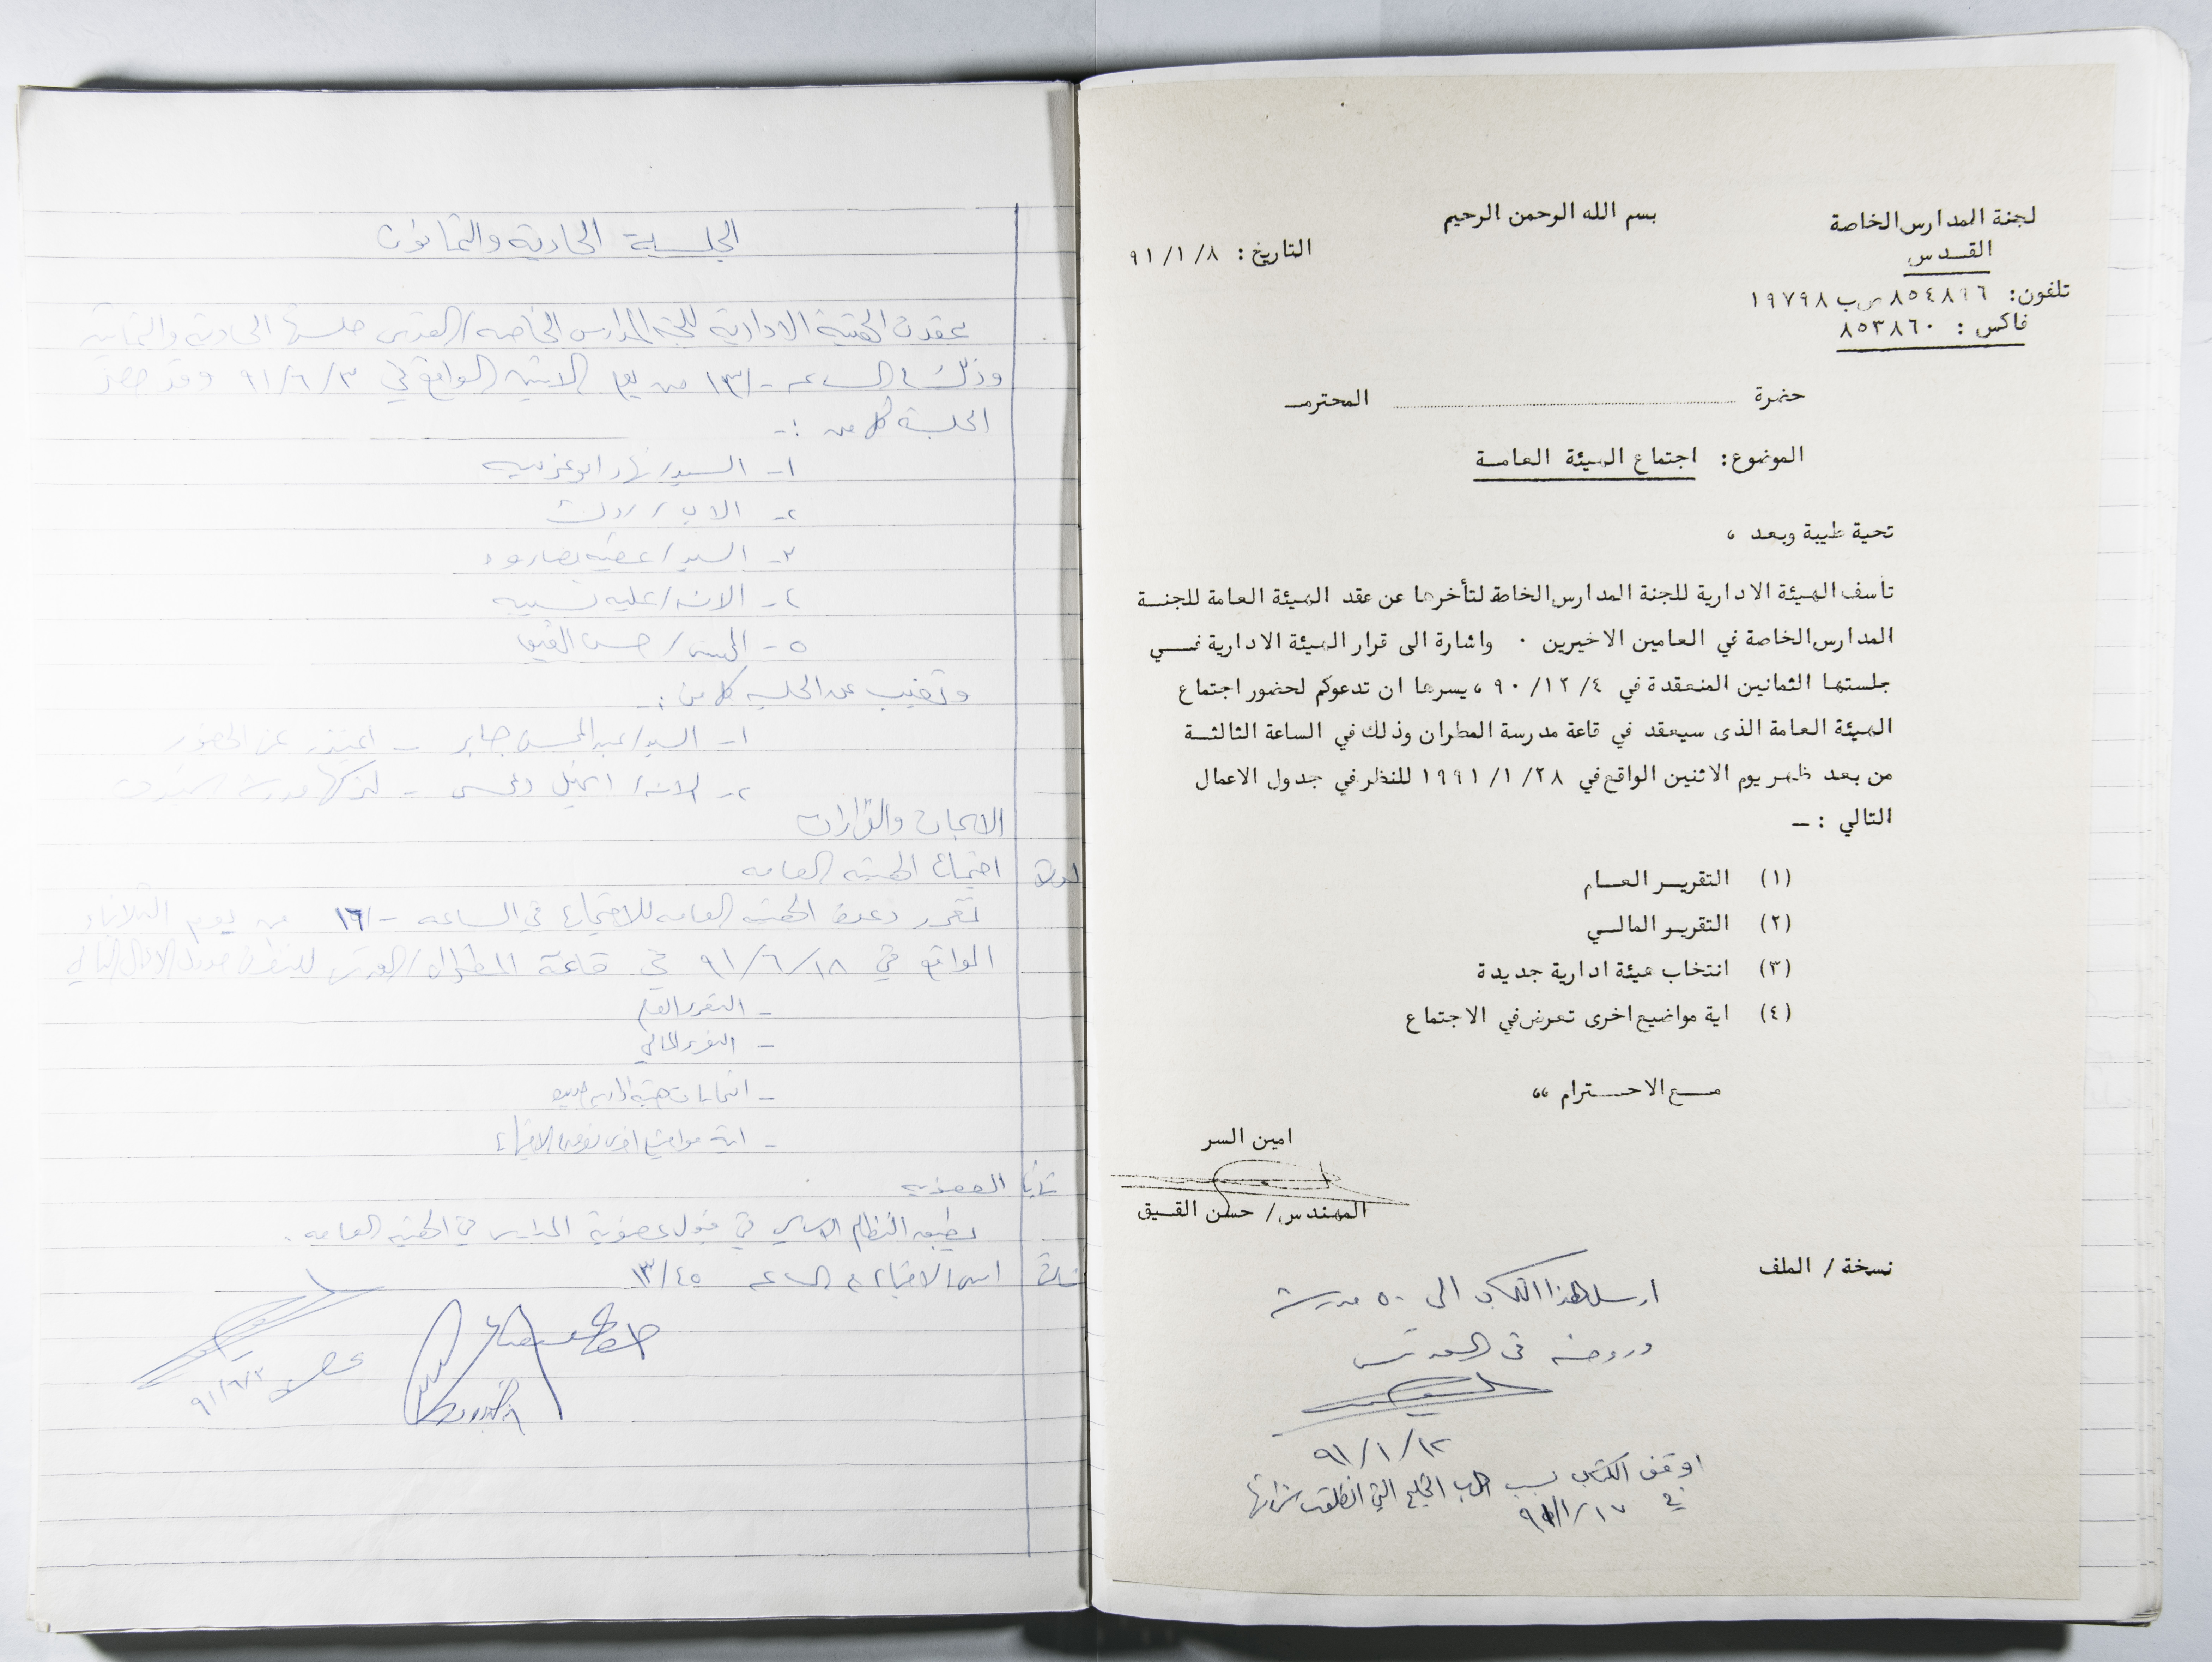 لجنة المدارس الخاصة
القدس
بسم الله الرحمن الرحيم
التاريخ : ٩١/١/٨
تلفون: ٨٥٤٨٩٦ ص ب ١٩٧٩٨
فاكس : ٨٥٣٨٦٠
حضرة المحترمـ
الموضوع: اجتماع الهيئة العامـة
تحية طيبة وبعد ،
تأسف الهيئة الادارية للجنة المدارس الخاصة لتأخرها عن عقد الهيئة العامة للجنـة
المدارس الخاصة في العامين الاخيرين . واشارة الى قرار الهيئة الادارية فــي
جلستها الثمانين المنعقدة في ٩٠/١٢/٤ ، يسرها ان تدعوكم لحضور اجتماع
الهيئة العامة الذى سيعقد في قاعة مدرسة المطران وذلك في الساعة الثالثـة
من بعد ظهر يوم الاثنين الواقع في ١٩٩١/١/٢٨ للنظر في جدول الاعمال
التالي : ـ
(١) التقريـر العـام
(٢) التقريـر المالـي
(٣) انتخاب هيئة ادارية جديدة
(٤) اية مواضيع اخرى تعرض في الاجتماع
مــع الاحــترام ،،
امين السر
المهندس / حسن القيـق
نسخة / الملف
ارسل هذا الكتاب الى ٥٠ مدرسة
وروضة في القدس
٩١/١/١٢
اوقف الكتاب بسبب حرب الخليج التي انطلقت شرارتها
في ٩١/١/١٧
الجلسة الحادية والثمانون
عقدت الهيئة الادارية للجنة المدارس الخاصة / القدس جلستها الحادية والثمانين
وذلك في الساعة -/١٣ من يوم الاثنين الواقع في ٩١/٦/٣ وقد حضر
الجلسة كل من :-
١- السيد/ نهاد ابو غربيه
٢- الاب /
٣- السيد/
٤- الانسه/ عليه نسيبه
٥- المهندس/ حسن القيق
وتغيب عن الجلسه كل من :-
١- السيد/ عبد المحسن جابر - اعتذر عن الحضور
٢- الانسه/ - لتركها مدرسة
الابحاث والقرارات
اولا اجتماع الهيئة العامه
تقرر دعوة الهيئه العامه للاجتماع في الساعه -/١٦ من يوم الثلاثاء
الواقع في ٩١/٦/١٨ في قاعة المطران/ القدس للنظر في جدول الاعمال التالي
- التقرير العام
- التقرير المالي
- انتخابات هيئة ادارية جديده
- اية مواضيع اخرى تعرض في الاجتماع
ثانيا العضويه
يطبق النظام الاساسي في قبول عضوية المدارس في الهيئه العامه .
ثالثا انتهى الاجتماع في الساعه ١٣/٤٥
٩١/٦/٣